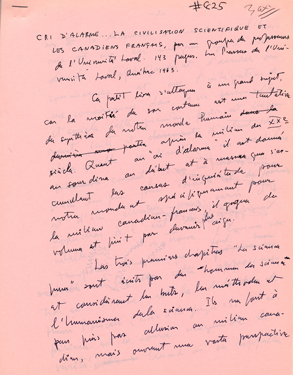 #825
CRI D'ALARME... LA CIVILISATION SCIENTIFIQUE ET
LES CANADIENS FRANÇAIS, par un groupe de professeurs
de l'Université Laval. 143 pages. Les Presses de l'Uni-
versité Laval, Québec 1963.
Ce petit livre s'attaque à un grand sujet,
car la moitié de son contenu est une tentative
de synthèse de notre monde humain
après la milieu du XXe
siècle. Quant au "cri d'alarme" il est donné
en sourdine au début et à mesure que s'ac-
cumulent les causes d'inquiétude pour
notre monde et spécifiquement pour
le milieu canadien-français, il gagne de
volume et finit par devenir aigu.
Les trois premiers chapitres "La science
pure" sont écrits par des hommes de science
et considèrent les buts, les méthodes et
l'humanisme de la science. Ils ne font à
peu près pas allusion au milieu cana-
dien, mais ouvrent une vaste perspective